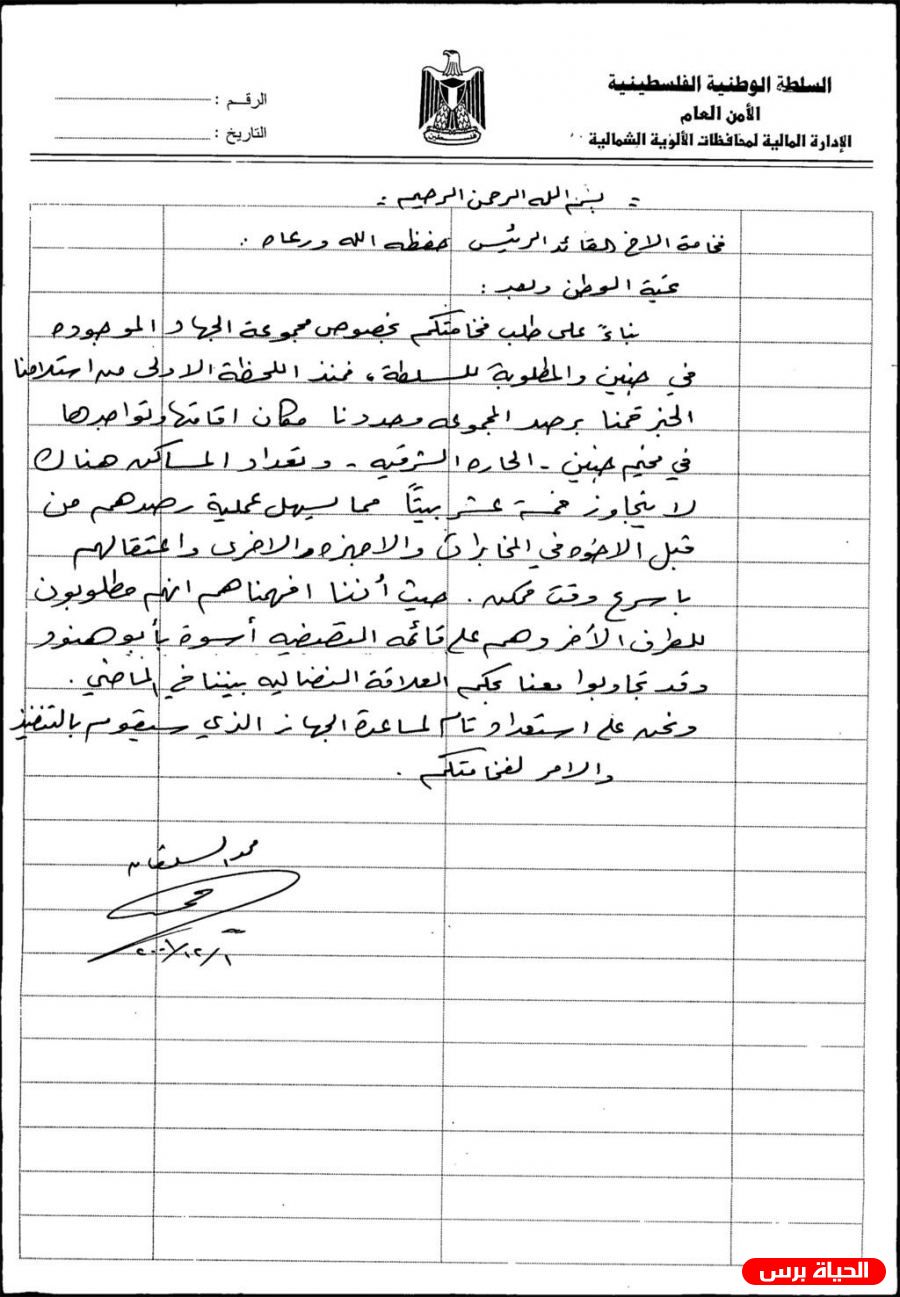 السلطة الوطنية الفلسطينية
الأمن العام
الإدارة المالية لمحافظات الألوية الشمالية
الرقم :
التاريخ :
فلسطين
بسم الله الرحمن الرحيم
فخامة الاخ القائد الرئيس حفظه الله ورعاه :
تحية الوطن وبعد :
بناءً على طلب فخامتكم بخصوص مجموعة الجهاد الموجوده
في جنين والمطلوبة للسلطة ، فمنذ اللحظة الاولى من استلامنا
الخبر قمنا برصد المجموعه وحددنا مكان اقامتها وتواجدها
في مخيم جنين - الحاره الشرقيه - وتعداد المساكن هناك
لا يتجاوز خمسة عشر بيتاً مما يسهل عملية رصدهم من
قبل الاخوه في المخابرات والاجهزه الاخرى واعتقالهم
باسرع وقت ممكن . حيث أننا افهمناهم انهم مطلوبون
للطرف الآخر وهم على قائمه التصفيه أسوة بأبو هنود
وقد تجاوبوا معنا بحكم العلاقة النضاليه بيننا في الماضي .
ونحن على استعداد تام لمساعدة الجهاز الذي سيقوم بالتنفيذ
والامر لفخامتكم .
٢٠٠١/١٢/١
الحياة برس